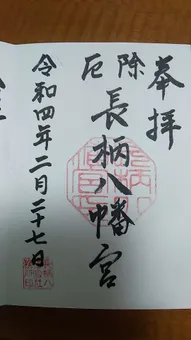 奉拝
除厄
長柄八幡宮
令和四年二月二十七日